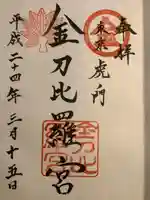 奉拝
東京虎ノ門
金刀比羅宮
平成二十四年三月十五日